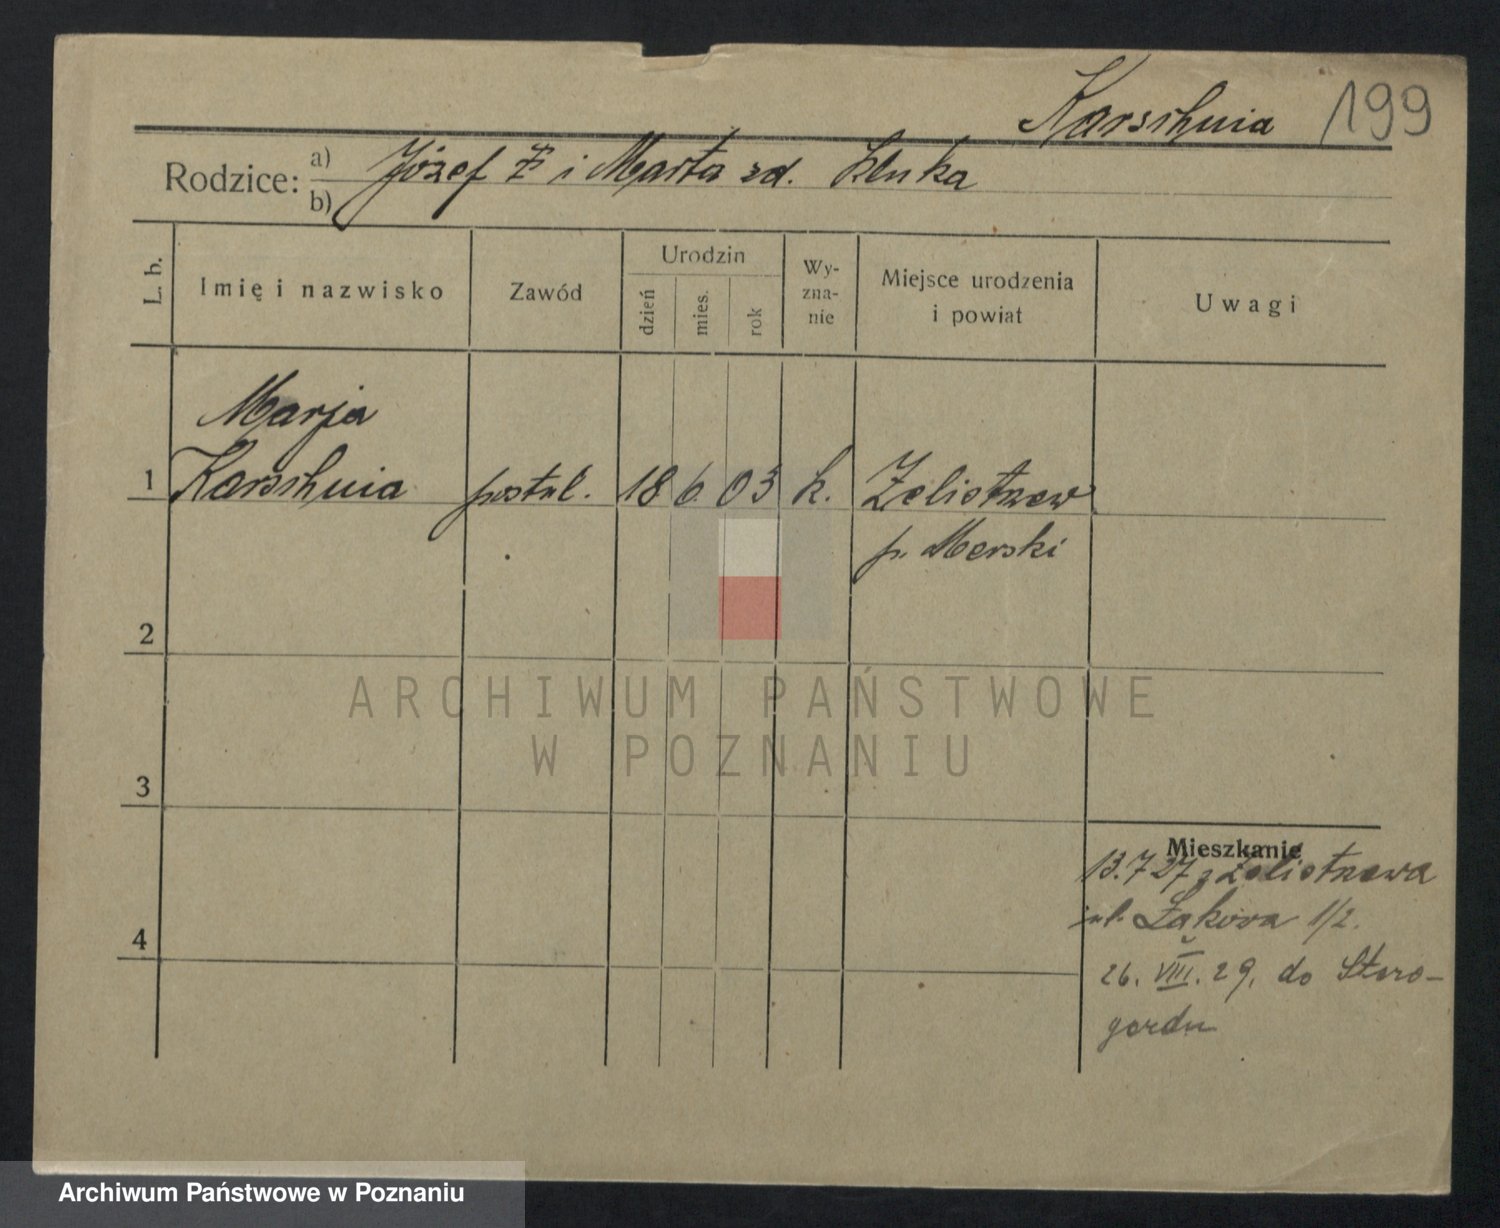 Karschnia 199
Rodzice: a) Józef K i Marta zd. Kluka
b)
L. b.
Imię i nazwisko
Zawód
Urodzin
dzień
mies.
rok
Wy-
zna-
nie
Miejsce urodzenia
i powiat
Uwagi
Marja
1 Karschnia postul. 18 6 03 k. Zelistrzew
p. Morski
2
3
4
Mieszkanie
13.7 27 z Zelistrzewa
ul. Łąkowa 1/2.
26. VIII. 29. do Staro-
gardu
ARCHIWUM PAŃSTWOWE
W POZNANIU
Archiwum Państwowe w Poznaniu